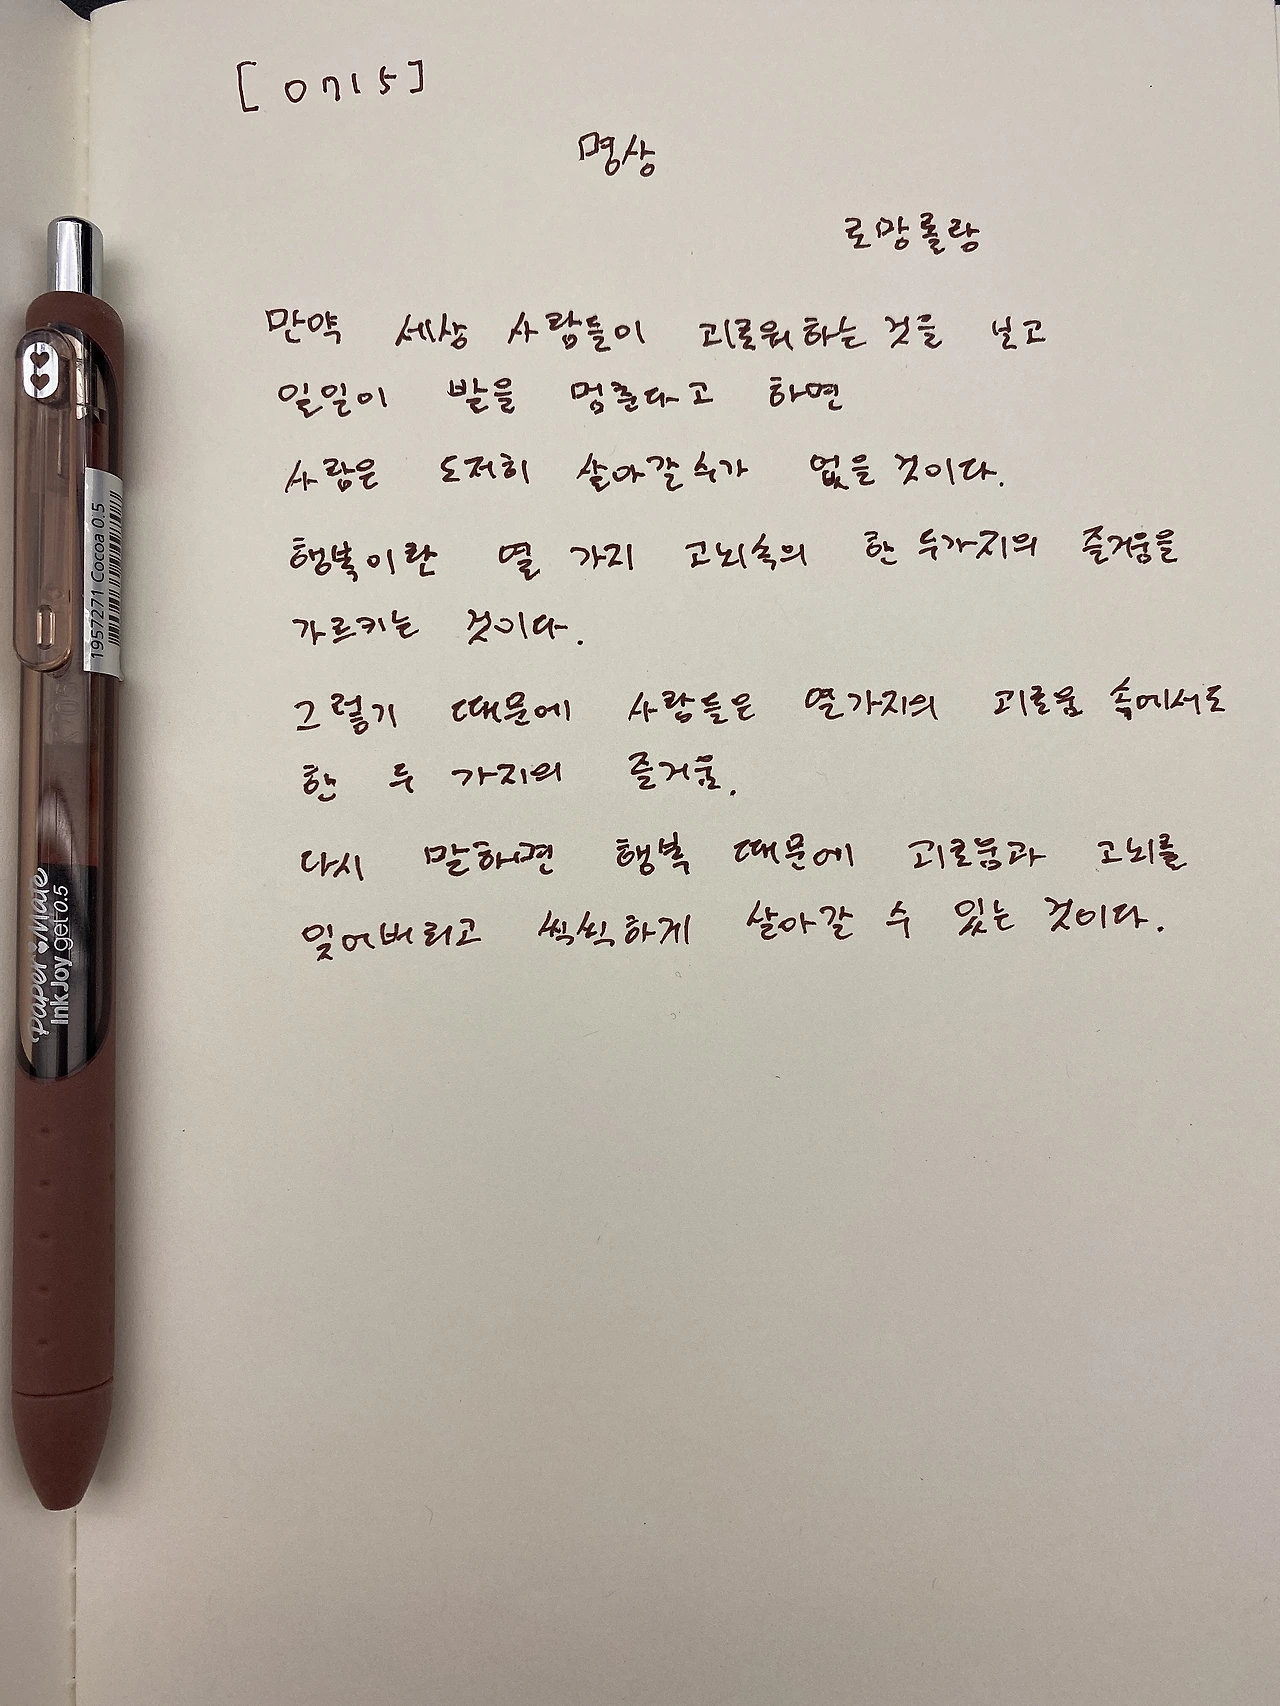 [0715]
명상
로망롤랑
만약 세상 사람들이 괴로워하는 것을 보고
일일이 발을 멈춘다고 하면
사람은 도저히 살아갈 수가 없을 것이다.
행복이란 열 가지 고뇌속의 한 두가지의 즐거움을
가르키는 것이다.
그렇기 때문에 사람들은 열가지의 괴로움 속에서도
한 두 가지의 즐거움.
다시 말하면 행복 때문에 괴로움과 고뇌를
잊어버리고 씩씩하게 살아갈 수 있는 것이다.
1957271 Cocoa 0.5
Paper Mate
InkJoy gel 0.5